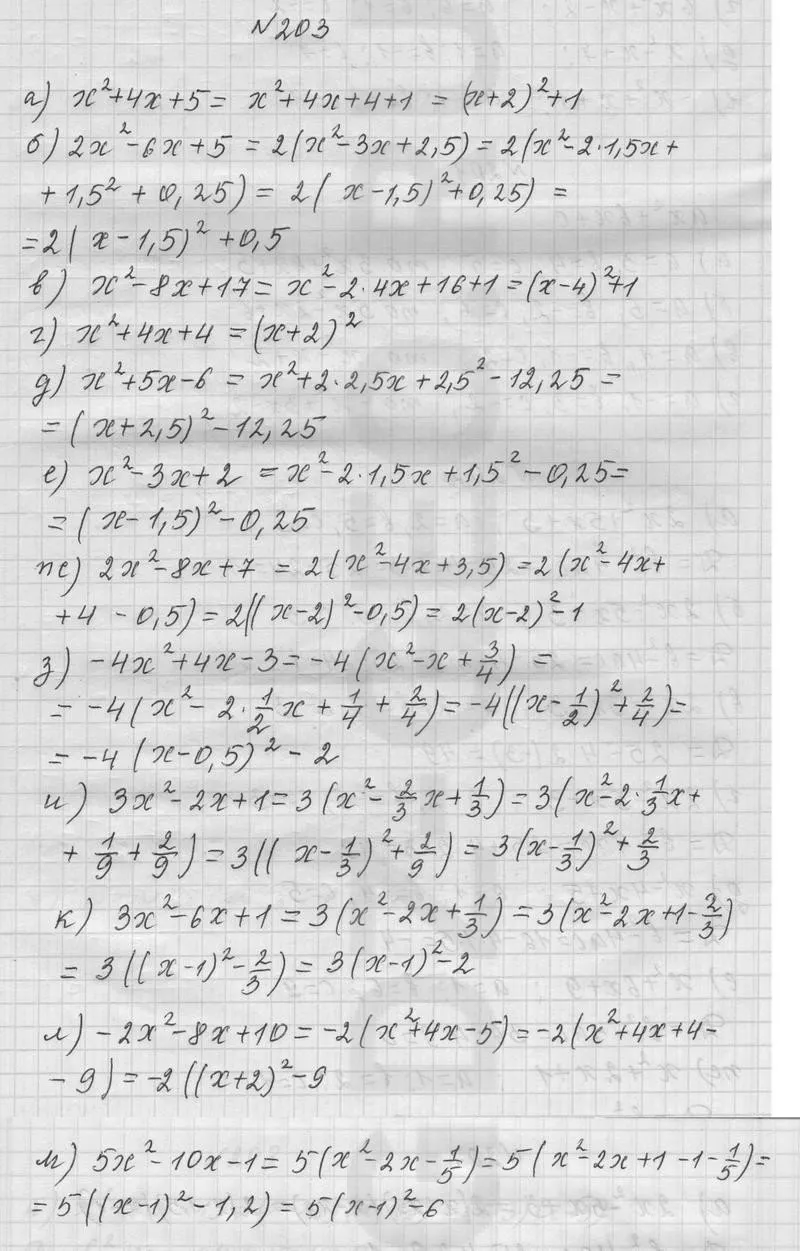 N203
а) x²+4x+5 = x²+4x+4+1 = (x+2)²+1
б) 2x²-6x+5 = 2(x²-3x+2,5) = 2(x²-2·1,5x+
+1,5²+0,25) = 2( x-1,5)²+0,25) =
=2( x-1,5)²+0,5
в) x²-8x+17= x²-2·4x+16+1=(x-4)²+1
г) x²+4x+4 =(x+2)²
д) x²+5x-6 = x²+2·2,5x+2,5²-12,25 =
=( x+2,5)²-12,25
е) x²-3x+2 =x²-2·1,5x+1,5²-0,25=
=( x-1,5)²-0,25
ж) 2x²-8x+7 = 2(x²-4x+3,5) =2(x²-4x+
+4 -0,5)=2((x-2)²-0,5)= 2(x-2)²-1
з) -4x²+4x-3=-4(x²-x+3/4) =
= -4(x²-2·1/2x+1/4+2/4)=-4((x-1/2)²+2/4)=
= -4 (x-0,5)²-2
и) 3x²-2x+1=3(x²-2/3x+1/3)=3(x²-2·1/3x+
+1/9+2/9)=3((x-1/3)²+2/9)=3(x-1/3)²+2/3
к) 3x²-6x+1=3(x²-2x+1/3)=3(x²-2x+1-2/3)
= 3((x-1)²-2/3)=3(x-1)²-2
л) -2x²-8x+10=-2(x²+4x-5)=-2(x²+4x+4-
-9)=-2((x+2)²-9
м) 5x²-10x-1= 5(x²-2x-1/5)=5(x²-2x+1-1-1/5)=
=5((x-1)²-1,2)=5(x-1)²-6